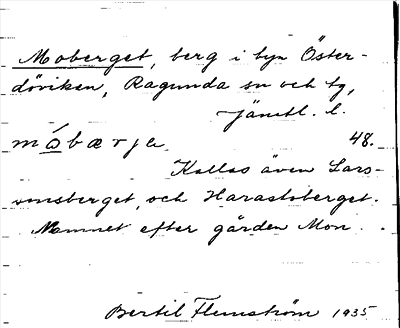 Moberget, berg i byn Öster-
döviken, Ragunda sn och tg,
Jämtl. l.
mós̲bærje 48.
Kallas även Lars-
onsberget, och Harastsberget.
Namnet efter gården Mon.
Bertil Flemström 1935